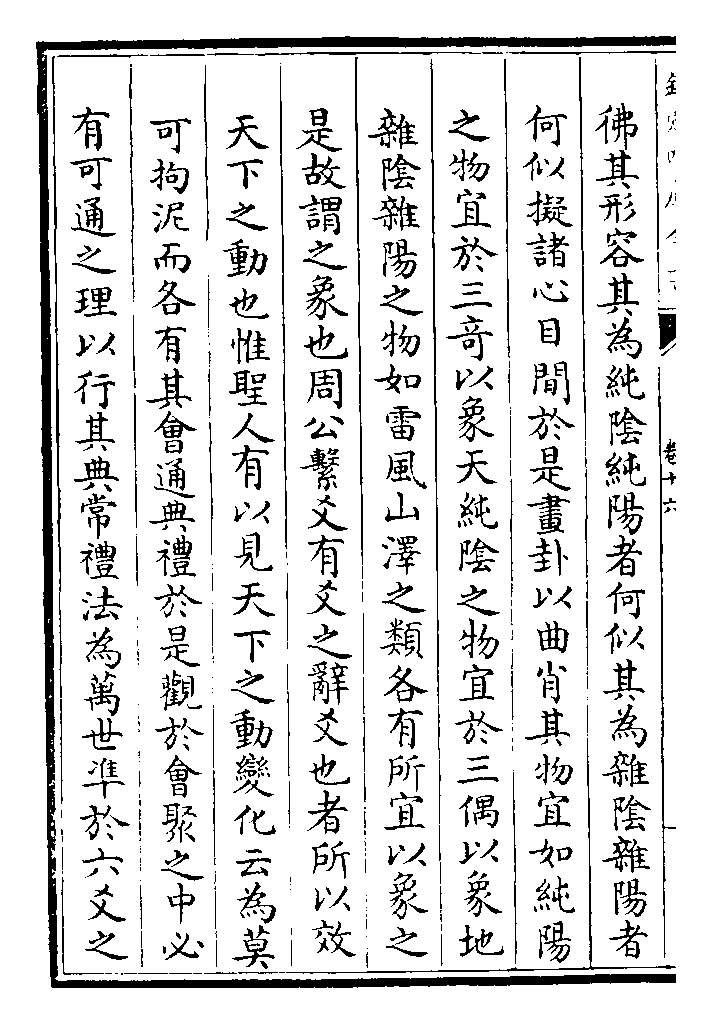 彿其形容其為純陰純陽者何似其為雜陰雜陽者
何似擬諸心目間於是畫卦以曲肖其物宜如純陽
之物宜於三竒以象天純陰之物宜於三偶以象地
雜陰雜陽之物如雷風山澤之類各有所宜以象之
是故謂之象也周公繫爻有爻之辭爻也者所以效
天下之動也惟聖人有以見天下之動變化云為莫
可拘泥而各有其會通典禮於是觀於會聚之中必
有可通之理以行其典常禮法為萬世準於六爻之
卷十六